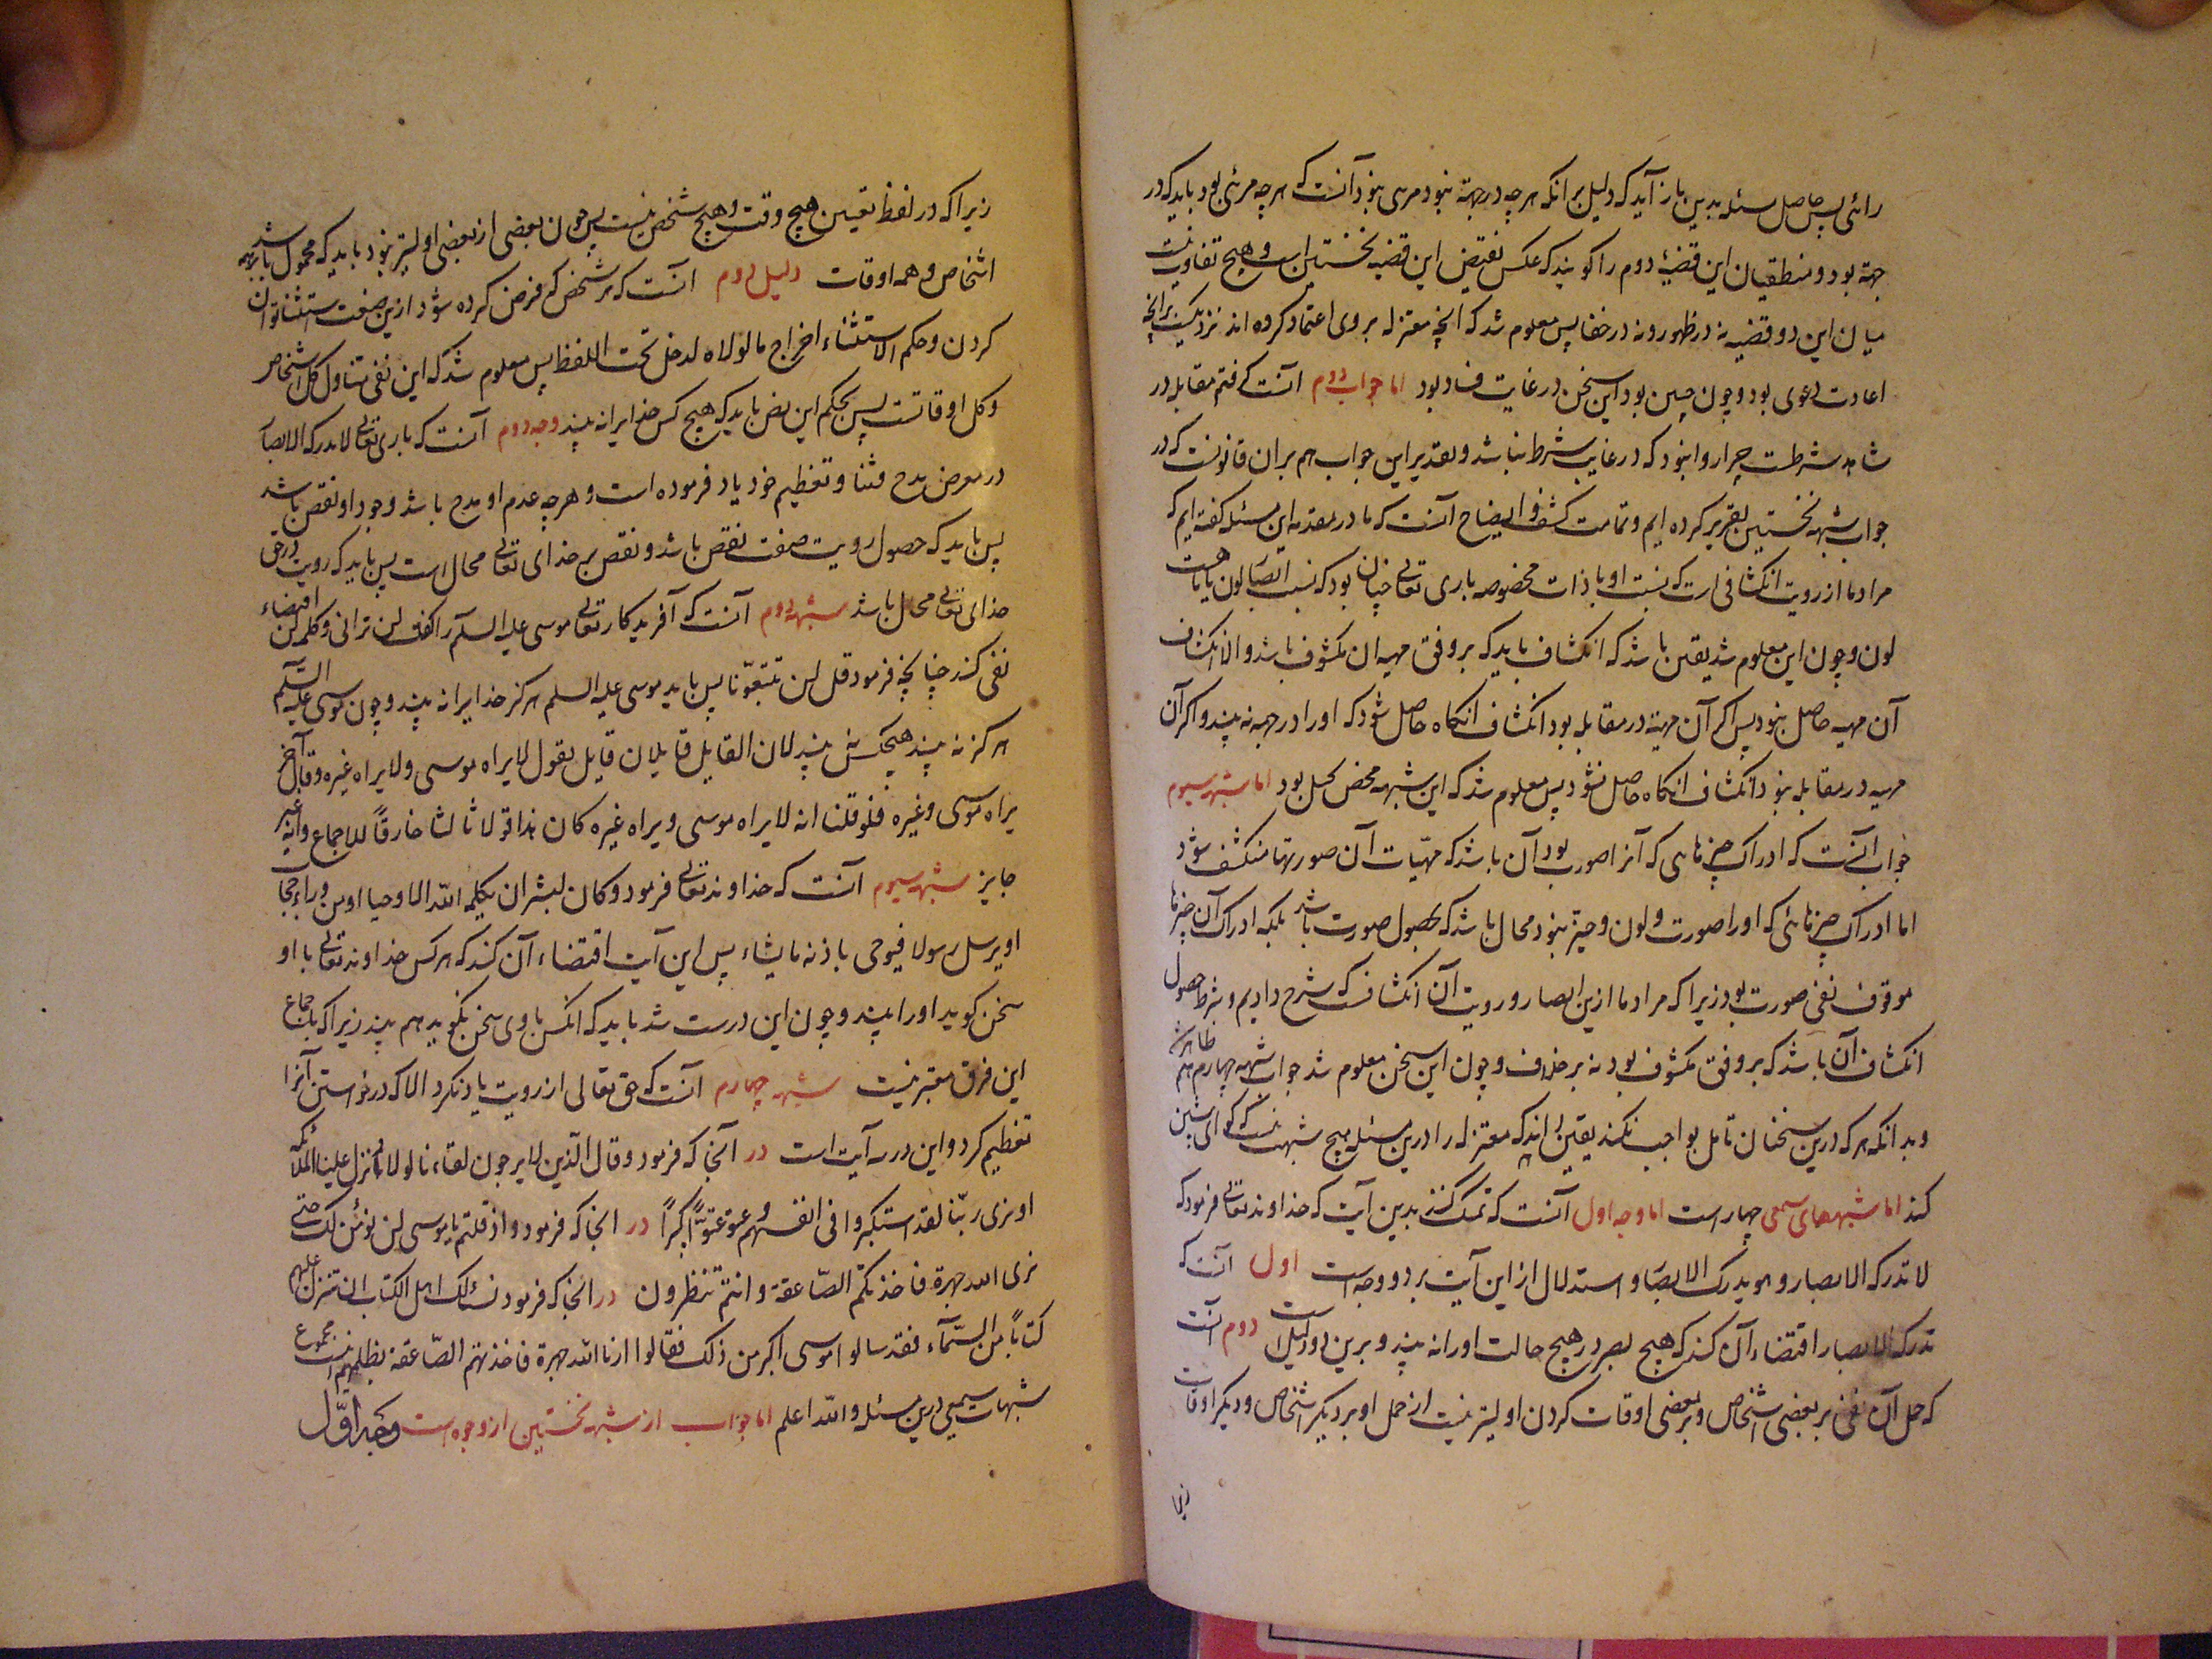 رائی پس حاصل سئله بدین باز آید که دلیل بر انکه هر چه در جهة نبود مرئی نبود آنست که هر چه مرئی بود باید که در
جهة بود و منطقیان این قضیهٔ دوم را کویند که عکس نقیض این قضیه نخستین است و هیچ تفاوت نیست
میان این دو قضیه نه در ظهور و نه در خفا پس معلوم شد که انچه معتزله بر وی اعتماد کرده اند نزدیکست برانچه
اعادت دعوی بود و چون چنین بود این سخن در غایت فساد بود اما جواب دوم آنست که کفتم مقابله در
شاهد شرطست چرا روا نبود که در غایب شرط نباشد و تقدیر این جواب هم بران قانونست که در
جواب شبهه نخستین تقریر کرده ایم و تمامت کشف و ایضاح آنست که ما در مقدمه این مسئله کفته ایم که
مراد ما از رویت انکشافی است که نسبت او با ذات مخصوصه باری تعالی چنان بود که نسبت ابصار لون با ماهیت
لون و چون این معلوم شد یقین باشد که انکشاف باید که بر وفق مهیه ان مکشوف باشد والا انکشاف
آن مهیه حاصل نبود پس اکر آن مهیة در مقابله بود انکشاف انکاه حاصل شود که او را در جهه نه بیند و اکر آن
مهیه در مقابله نبود انکشاف انکاه حاصل نشود پس معلوم شد که این شبهه محض تخیل بود اما شبهه سیوم
جواب آنست که ادراک چیزهائی که آنرا صورت بود آن باشد که مهیّات آن صورتها منکشف شود
اما ادراک چیزهائی که او را صورت و لون و حیّز نبود محال باشد که بحصول صورت باشد بلکه ادراک آن چیزها
موقوف نفی صورت بود زیرا که مراد ما ازین ابصار و رویت آن انکشافست که شرح دادیم و شرط حصول
انکشاف آن باشد که بر وفق مکشوف بود نه برخلاف و چون این سخن معلوم شد جواب شبهه چهارم هم ظاهر شد
و بدانکه هر که درین سخنان تامل بواجب بکند یقین داند که معتزله را درین مسئله هیچ شبهت نیست که کوای شین
کند اما شبهتهای سمعی چهار است اما وجه اول آنست که تمسک کنند بدین آیت که خداوند تعالی فرمود که
لا تدرکه الابصار و هو یدرک الابصار و استدلال از این آیت بر دو وجه است اول آنست که
تدرکه الابصار اقتضاء آن کند که هیچ بصر در هیچ حالت او را نه بیند و برین دو دلیل است دوم آنست
که حمل آن نفی بر بعضی اشخاص و بر بعضی اوقات کردن اولیتر نیست از حمل او بر دیکر اشخاص و دیکر اوقات
زیرا
زیرا که در لفظ تعیین هیچ وقت و هیچ شخص نیست پس چون بعضی از بعضی اولیتر نبود باید که محمول باشد بر همه
اشخاص و همه اوقات دلیل دوم آنست که هر شخص که فرض کرده شود ازین صفت استثنا توان
کردن و حکم الاستثناء اخراج ما لولاه لدخل تحت اللفظ پس معلوم شد که این نفی متناول کل اشخاص
و کل اوقاتست پس بحکم این نص باید که هیچ کس خدایرا نه بیند وجه دوم آنست که باری تعالی لا تدرکه الابصار
در معرض مدح و ثنا و تعظیم خود یاد فرموده است و هر چه عدم او مدح باشد وجود او نقص باشد
پس باید که حصول رویت صفت نقص باشد و نقص بر خدای تعالی محال است پس باید که رویت در حق
خدای تعالی محال باشد شبهه دوم آنست که آفریدکار تعالی موسی علیه السلم را کفت لن ترانی و کلمه لن اقتضاء
نفی کند چنانچه فرمود قل لن تتبعونا پس باید موسی علیه السلم هرکز خدایرا نه بیند و چون موسی علیه السّلم
هرکز نه بیند هیچکس نه بیند لان القایل قایلان قایل یقول لا یراه موسی و لا یراه غیره و قایل آخر
یراه موسی و غیره فلو قلنا انه لا یراه موسی و یراه غیره کان هذا قولا ثالثا خارقًا للاجماع و انه غیر
جایز شبهه سیوم آنست که خداوند تعالی فرمود و کان لبشر ان یکلمه الله الا وحیا او من وراء حجاب
او یرسل رسولا فیوحی باذنه ما یشاء پس این آیت اقتضاء آن کند که هر کس خداوند تعالی با او
سخن کوید او را نبیند و چون این درست شد باید که انکس با وی سخن نکوید هم نبیند زیرا که باجماع
این فرق معتبر نیست شبهه چهارم آنست که حق تعالی از رویت یاد نکرد الا که درخواستن آنرا
تعظیم کرد و این در سه آیت است در آنجا که فرمود و قال الذین لا یرجون لقاءنا لولا انزل علینا الملائکه
او نری ربّنا لقد استکبروا فی انفسهم و عتو عتوًّا کبیرًا در انجا که فرمود و اذ قلتم یا موسی لن نؤمن لک حتی
نری الله جهرة فاخذتکم الصّاعقة و انتم تنظرون در انجا که فرمود یسئلک اهل الکتاب ان تنزل علیهم
کتابًا من السّمآء فقد سالوا موسی اکبر من ذلک فقالوا ارنا الله جهرة فاخذتهم الصّاعقة بظلمهم اینست مجموع
شبهات سمعی درین مسئله و الله اعلم اما جواب از شبهه نخستین از وجوه است وجه اوّل